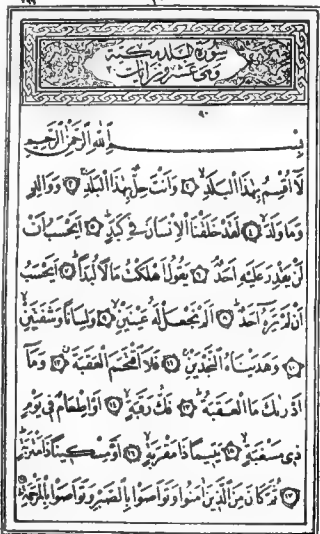 سورة البلد مكية
وهي عشرون آيات
٩٠
بسم الله الرحمن الرحيم
لَا أُقْسِمُ بِهَذَا الْبَلَدِ ١ وَأَنْتَ حِلٌّ بِهَذَا الْبَلَدِ ٢ وَوَالِدٍ
وَمَا وَلَدَ ٣ لَقَدْ خَلَقْنَا الْإِنْسَانَ فِي كَبَدٍ ٤ أَيَحْسَبُ أَنْ
لَنْ يَقْدِرَ عَلَيْهِ أَحَدٌ ٥ يَقُولُ أَهْلَكْتُ مَالًا لُبَدًا ٦ أَيَحْسَبُ
أَنْ لَمْ يَرَهُ أَحَدٌ ٧ أَلَمْ نَجْعَلْ لَهُ عَيْنَيْنِ ٨ وَلِسَانًا وَشَفَتَيْنِ ٩
١٠ وَهَدَيْنَاهُ النَّجْدَيْنِ فَلَا اقْتَحَمَ الْعَقَبَةَ ١١ وَمَا
أَدْرَاكَ مَا الْعَقَبَةُ ١٢ فَكُّ رَقَبَةٍ ١٣ أَوْ إِطْعَامٌ فِي يَوْمٍ
ذِي مَسْغَبَةٍ ١٤ يَتِيمًا ذَا مَقْرَبَةٍ ١٥ أَوْ مِسْكِينًا ذَا مَتْرَبَةٍ
ثُمَّ كَانَ مِنَ الَّذِينَ آمَنُوا وَتَوَاصَوْا بِالصَّبْرِ وَتَوَاصَوْا بِالْمَرْحَمَةِ